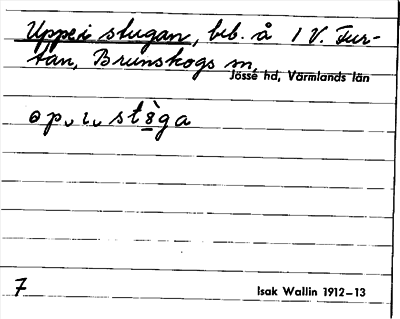 Uppe i stugan, beb. å 1 V. Fur-
tan, Brunskogs sn,
Jösse hd, Värmlands län
7
Isak Wallin 1912–13